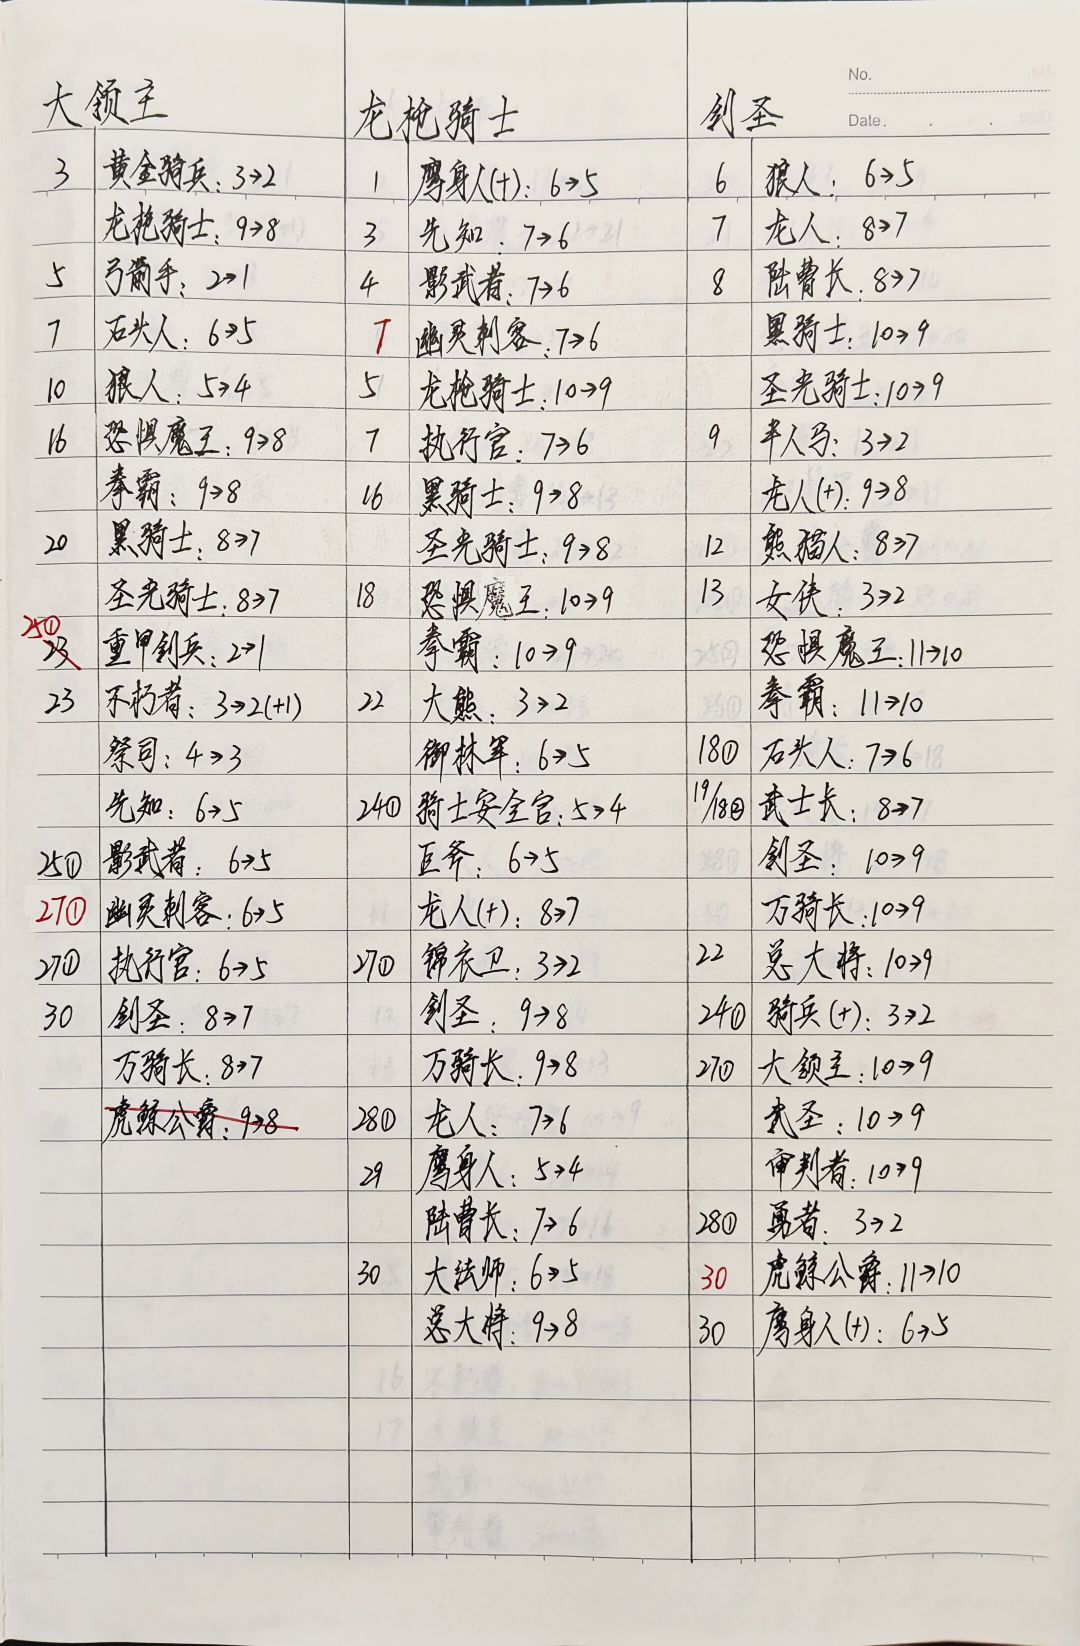 No.
Date.
大领主
3 黄金骑兵：3→2
龙枪骑士：9→8
5 弓箭手：2→1
7 石头人：6→5
10 狼人：5→4
16 恐惧魔王：9→8
拳霸：9→8
20 黑骑士：8→7
圣光骑士：8→7
25① 23 重甲剑兵：2→1
23 不朽者：3→2(+1)
祭司：4→3
先知：6→5
25① 影武者：6→5
27① 幽灵刺客：6→5
27① 执行官：6→5
30 剑圣：8→7
万骑长：8→7
虎鲸公爵：9→8
龙枪骑士
1 鹰身人(+)：6→5
3 先知：7→6
4 影武者：7→6
7 幽灵刺客：7→6
5 龙枪骑士：10→9
7 执行官：7→6
16 黑骑士：9→8
圣光骑士：9→8
18 恐惧魔王：10→9
拳霸：10→9
22 大熊：3→2
御林军：6→5
24① 骑士安全官：5→4
巨斧：6→5
龙人(+)：8→7
27① 锦衣卫：3→2
剑圣：9→8
万骑长：9→8
28① 龙人：7→6
29 鹰身人：5→4
陆曹长：7→6
30 大法师：6→5
总大将：9→8
剑圣
6 狼人：6→5
7 龙人：8→7
8 陆曹长：8→7
黑骑士：10→9
圣光骑士：10→9
9 半人马：3→2
龙人(+)：9→8
12 熊猫人：8→7
13 女侠：3→2
恐惧魔王：11→10
拳霸：11→10
18① 石头人：7→6
19/18② 武士长：8→7
剑圣：10→9
万骑长：10→9
22 总大将：10→9
24① 骑兵(+)：3→2
27① 大领主：10→9
武圣：10→9
审判者：10→9
28① 勇者：3→2
30 虎鲸公爵：11→10
30 鹰身人(+)：6→5